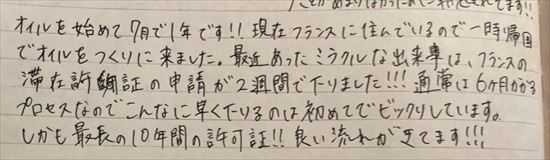 オイルを始めて7月で1年です!! 現在フランスに住んでいるので一時帰国
でオイルをつくりに来ました。最近あったミラクルな出来事は、フランスの
滞在許可証の申請が2週間で下りました!!! 通常は6ヶ月かかる
プロセスなのでこんなに早く下りるのは初めてでビックリしています。
しかも最長の10年間の許可証!! 良い流れがきてます!!!